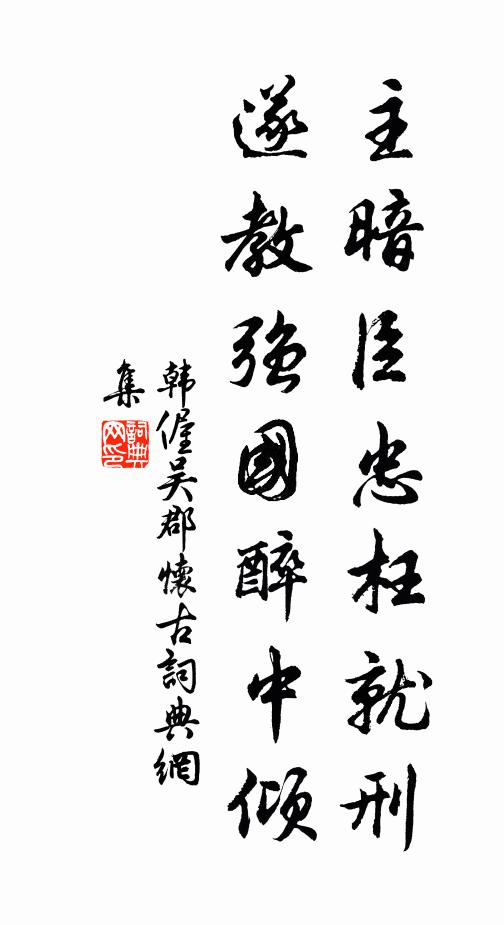 主暗臣忠枉就刑
遂教强國醉中傾
韩偓吴郡懷古詞典網
集
詞典
网印